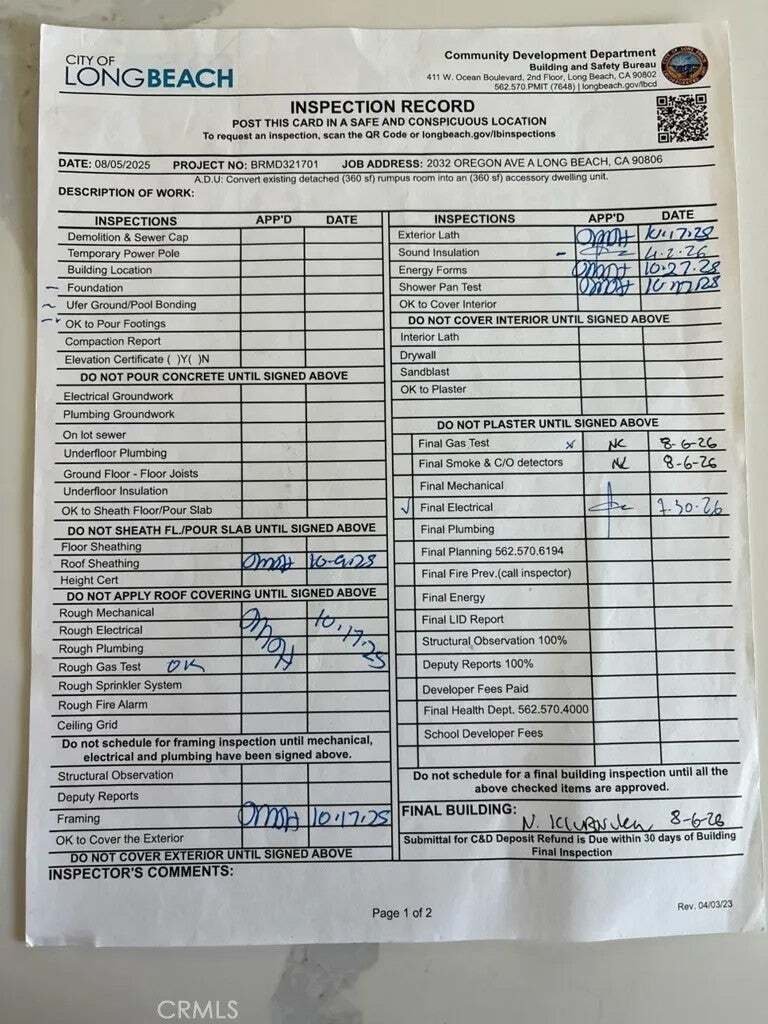 CITY OF
LONGBEACH
Community Development Department
Building and Safety Bureau
411 W. Ocean Boulevard, 2nd Floor, Long Beach, CA 90802
562.570.PMIT (7648) | longbeach.gov/lbcd
INSPECTION RECORD
POST THIS CARD IN A SAFE AND CONSPICUOUS LOCATION
To request an inspection, scan the QR Code or longbeach.gov/lbinspections
DATE: 08/05/2025 PROJECT NO: BRMD321701 JOB ADDRESS: 2032 OREGON AVE A LONG BEACH, CA 90806
A.D.U: Convert existing detached (360 sf) rumpus room into an (360 sf) accessory dwelling unit.
DESCRIPTION OF WORK:
INSPECTIONS APP'D DATE
Demolition & Sewer Cap
Temporary Power Pole
Building Location
Foundation
Ufer Ground/Pool Bonding
OK to Pour Footings
Compaction Report
Elevation Certificate ( )Y( )N
DO NOT POUR CONCRETE UNTIL SIGNED ABOVE
Electrical Groundwork
Plumbing Groundwork
On lot sewer
Underfloor Plumbing
Ground Floor - Floor Joists
Underfloor Insulation
OK to Sheath Floor/Pour Slab
DO NOT SHEATH FL./POUR SLAB UNTIL SIGNED ABOVE
Floor Sheathing
Roof Sheathing
Height Cert
DO NOT APPLY ROOF COVERING UNTIL SIGNED ABOVE
Rough Mechanical
Rough Electrical 10.17.25
Rough Plumbing
Rough Gas Test OK
Rough Sprinkler System
Rough Fire Alarm
Ceiling Grid
Do not schedule for framing inspection until mechanical,
electrical and plumbing have been signed above.
Structural Observation
Deputy Reports
Framing 10.17.25
OK to Cover the Exterior
DO NOT COVER EXTERIOR UNTIL SIGNED ABOVE
INSPECTOR'S COMMENTS:
INSPECTIONS APP'D DATE
Exterior Lath
Sound Insulation 4.2.26
Energy Forms
Shower Pan Test
OK to Cover Interior
DO NOT COVER INTERIOR UNTIL SIGNED ABOVE
Interior Lath
Drywall
Sandblast
OK to Plaster
DO NOT PLASTER UNTIL SIGNED ABOVE
Final Gas Test x NK 8-6-26
Final Smoke & C/O detectors NK 8-6-26
Final Mechanical
Final Electrical 7.30.26
Final Plumbing
Final Planning 562.570.6194
Final Fire Prev.(call inspector)
Final Energy
Final LID Report
Structural Observation 100%
Deputy Reports 100%
Developer Fees Paid
Final Health Dept. 562.570.4000
School Developer Fees
Do not schedule for a final building inspection until all the
above checked items are approved.
FINAL BUILDING: N. 8-6-26
Submittal for C&D Deposit Refund is Due within 30 days of Building
Final Inspection
Page 1 of 2
Rev. 04/03/23
CRMLS